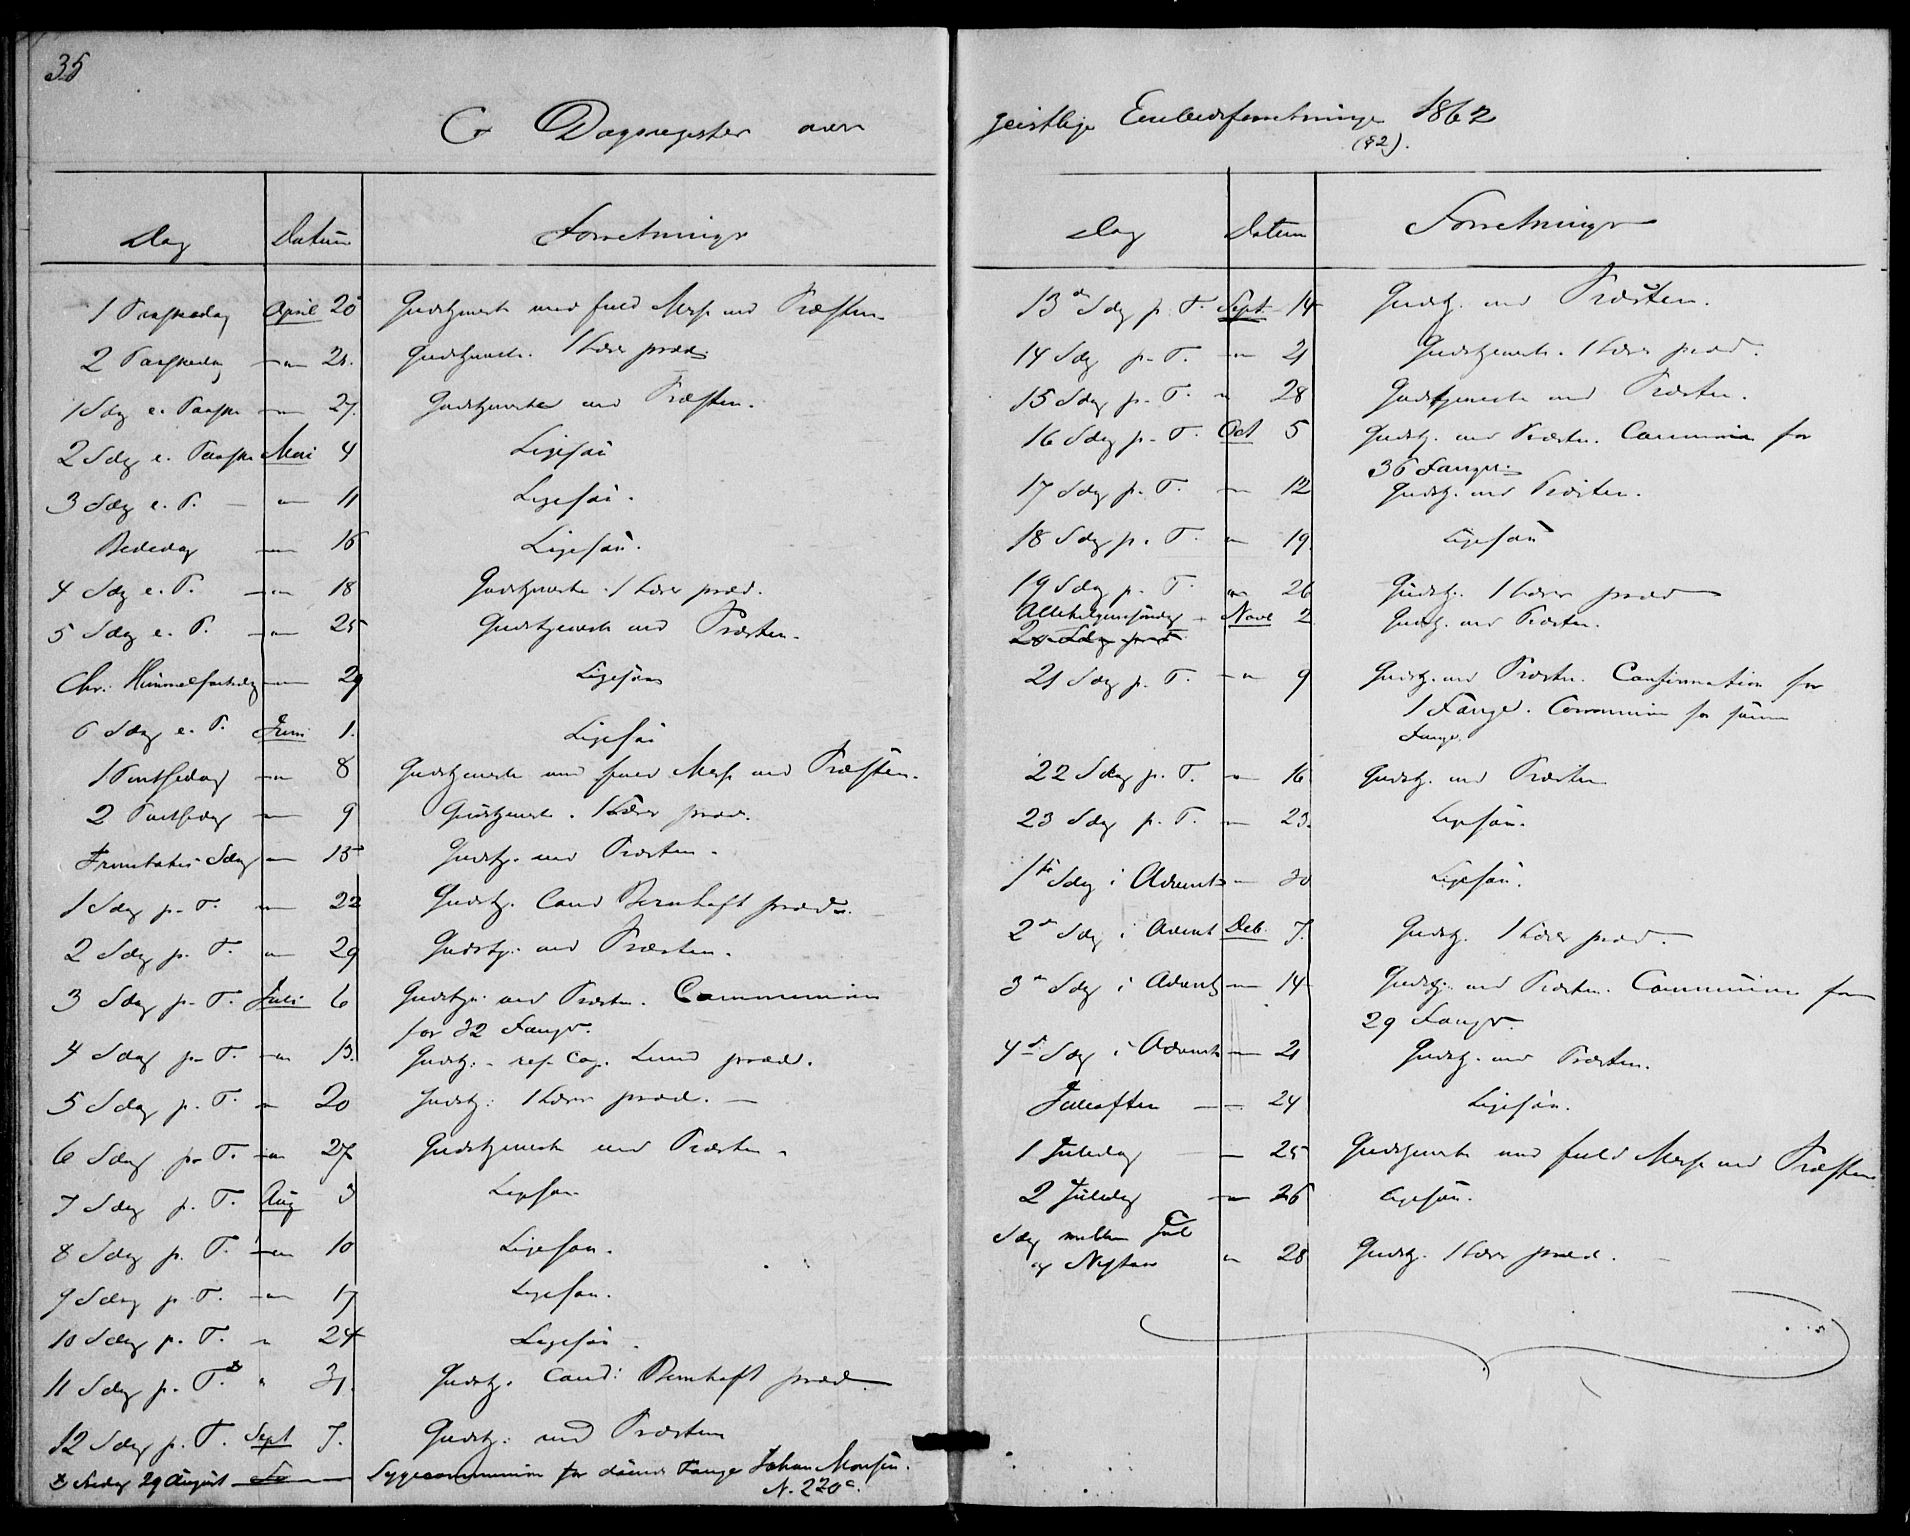 35
G Dagsregister over
Dag Datum Forretninger
1 Paaskedag April 20 Gudstjeneste med fuld Messe ved Præsten.
2 Paaskedag — 21. Gudstjeneste. 1 Lærer præd.
1 Sdag e. Paaske — 27. Gudstjeneste ved Præsten.
2 Sdag e. Paaske Mai 4 Ligesaa
3 Sdag e. P. — 11 Ligesaa.
Bededag — 16 Ligesaa.
4 Sdag e. P. — 18 Gudstjeneste. 1 Lærer præd.
5 Sdag e. P. — 25 Gudstjeneste ved Præsten.
Chr. Himmelfartsdag — 29 Ligesaa
6 Sdag e. P. Juni 1. Ligesaa
1 Pintsedag — 8 Gudstjeneste med fuld Messe ved Præsten.
2 Pintsedag — 9 Gudstjeneste. 1 Lærer præd.
Trinitatis Sdag — 15 Gudstj. ved Præsten.
1 Sdag p. T. — 22 Gudstj. Cand Bernhoft præd.
2 Sdag p. T. — 29 Gudstj. ved Præsten.
3 Sdag p. T. Juli 6 Gudstj. ved Præsten. Communion
for 32 Fanger.
4 Sdag p. T. — 13. Gudstj. - res. Cap. Lund præd.
5 Sdag p. T. — 20 Gudstj. 1 Lærer præd. —
6 Sdag p. T. — 27 Gudstjeneste ved Præsten.
7 Sdag p. T. Aug 3 Ligesaa
8 Sdag p. T. — 10 Ligesaa.
9 Sdag p. T. — 17 Ligesaa.
10 Sdag p. T. " 24 Ligesaa.
11 Sdag p. T. x " 31. Gudstj. Cand: Bernhoft præd.
12 Sdag p. T. Sept 7. Gudstj. ved Præsten
x Fredag 29 August Sygecommunion for døende Fange Johan Monsen.
N. 220 c.
geistlige Embedsforretninger 1862
(§2).
Dag Datum Forretninger
13de Sdag p. T. Sept 14 Gudstj. ved Præsten.
14 Sdag p. T. — 21 Gudstjeneste. 1 Lærer præd.
15 Sdag p. T. " 28 Gudstjeneste ved Præsten.
16 Sdag p. T. Oct 5 Gudstj. ved Præsten. Communion for
36 Fanger.
17 Sdag p. T. — 12 Gudstj. ved Præsten.
18 Sdag p. T. — 19. Ligesaa
19 Sdag p. T. — 26 Gudstj. 1 Lærer præd
Allehelgenssøndag Nove 2 Gudstj. ved Præsten.
20 Sdag p. T.
21 Sdag p. T. — 9 Gudstj. ved Præsten. Confirmation for
1 Fange. Communion for samme
Fange.
22 Sdag p. T. — 16 Gudstj. ved Præsten
23 Sdag p. T. — 23. Ligesaa.
1ste Sdag i Advent — 30 Ligesaa.
2den Sdag i Advent Deb. 7. Gudstj. 1 Lærer præd.
3die Sdag i Advent — 14 Gudstj. ved Præsten. Communion for
29 Fanger.
4de Sdag i Advent — 21 Gudstj. ved Præsten.
Juleaften — 24 Ligesaa.
1 Juledag — 25 Gudstjeneste med fuld Messe ved Præsten
2 Juledag — 26 Ligesaa.
Sdag mellem Jul
og Nytaar " 28 Gudstj. 1 Lærer præd.